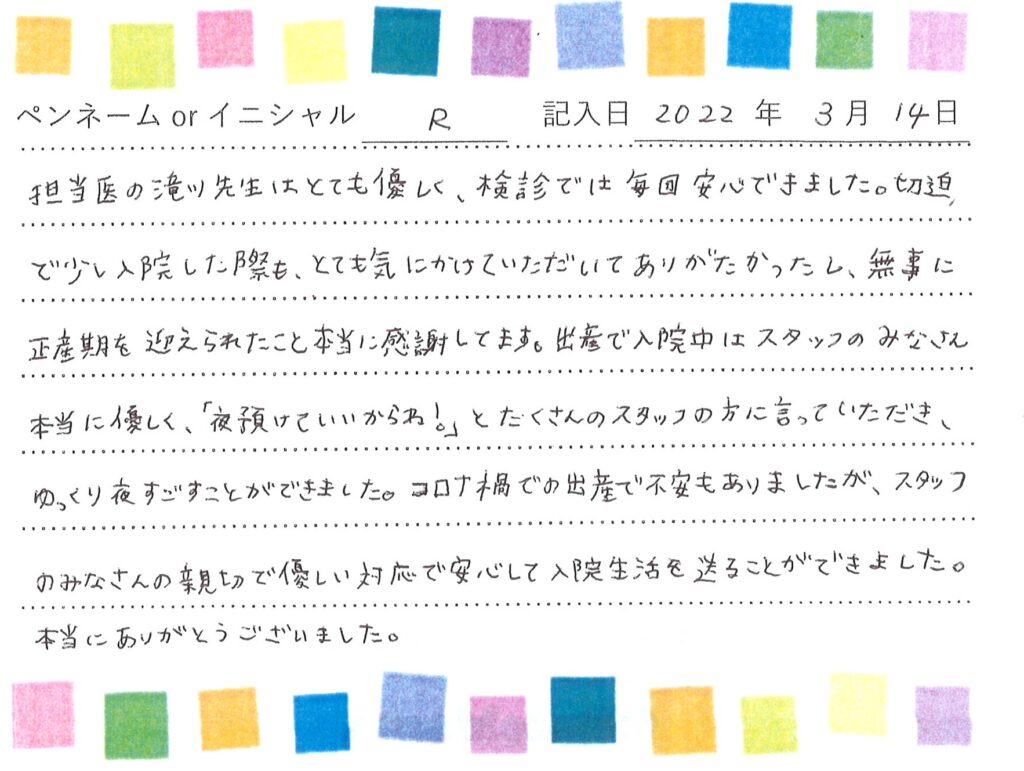 ペンネーム or イニシャル R 記入日 2022 年 3 月 14 日
担当医の滝川先生はとても優しく、検診では毎回安心できました。切迫
で少し入院した際も、とても気にかけていただいてありがたかったし、無事に
正産期を迎えられたこと本当に感謝してます。出産で入院中はスタッフのみなさん
本当に優しく、「夜預けていいからね!。」とたくさんのスタッフの方に言っていただき、
ゆっくり夜すごすことができました。コロナ禍での出産で不安もありましたが、スタッフ
のみなさんの親切で優しい対応で安心して入院生活を送ることができました。
本当にありがとうございました。